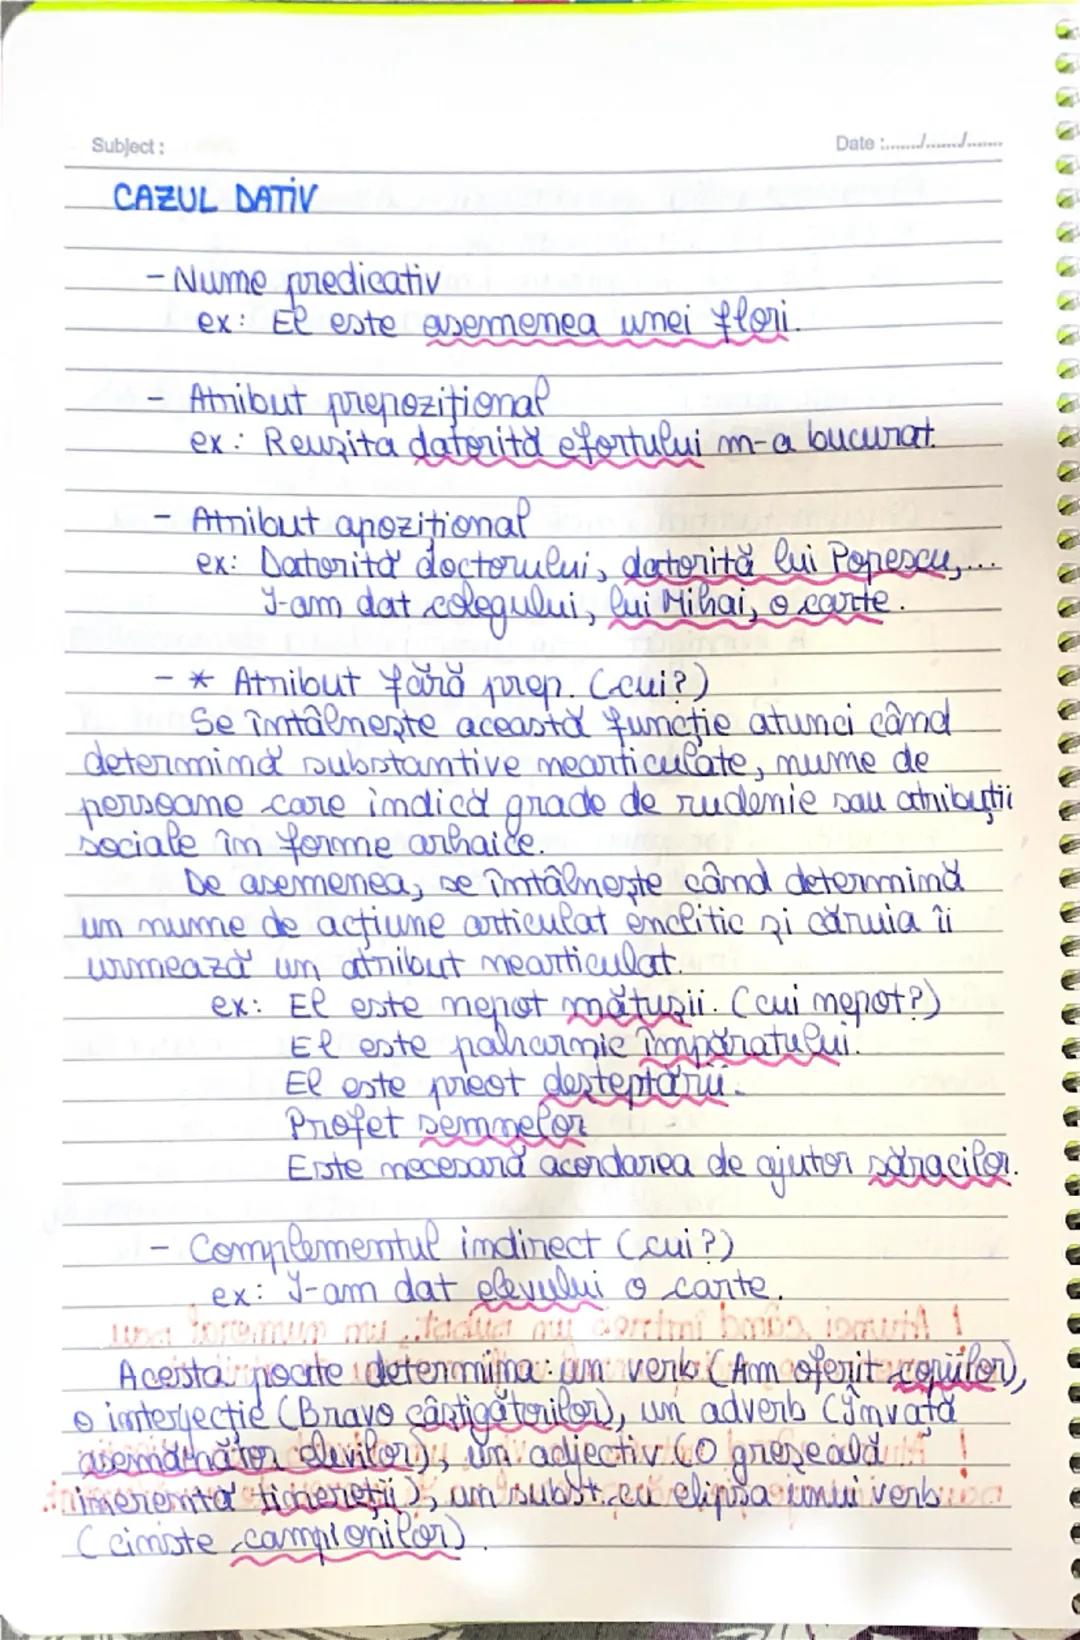 Subject :
Date :......../......../........
CAZUL DATIV
- Nume predicativ
ex: El este asemenea unei flori.
- Atribut prepozițional
ex: Reușita datorită efortului m-a bucurat.
- Atribut apozițional
ex: Datorită doctorului, datorită lui Popescu,...
I-am dat colegului, lui Mihai, o carte.
- * Atribut fără prep. (cui?)
Se întâlnește această funcție atunci când
determină substantive nearticulate, nume de
persoane care indică grade de rudenie sau atribuții
sociale în forme arhaice.
De asemenea, se întâlnește când determină
un nume de acțiune articulat enclitic și căruia îi
urmează un atribut nearticulat.
ex: El este nepot mătușii. (cui nepot?)
El este paharnic împăratului.
El este preot deșteptării.
Profet semnelor
Este necesară acordarea de ajutor săracilor.
- Complementul indirect (cui?)
ex: I-am dat elevului o carte.
Acesta poate determina: un verb (Am oferit copiilor),
o interjecție (Bravo câștigătorilor), un adverb (Învață
asemănător elevilor), un adjectiv (O greșeală
inerentă tinereții), un subst. cu elipsa unui verb
(cinste campionilor).